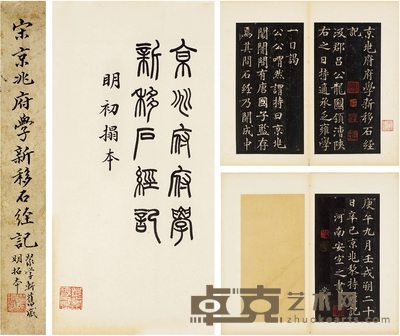 宋京兆府學新移石經記
明拓本
京兆府府學
新移石經記
明初搨本
京兆府府學新移石經
記
汲郡呂公龍圖領漕陝
右之日持適承乏雍學
一日謁
公公喟然謂持曰京兆
闤闠間有唐國子監存
焉其間石經乃開成中
庚午九月壬戌朔二十
日辛巳京兆黎持記
河南安宜之書